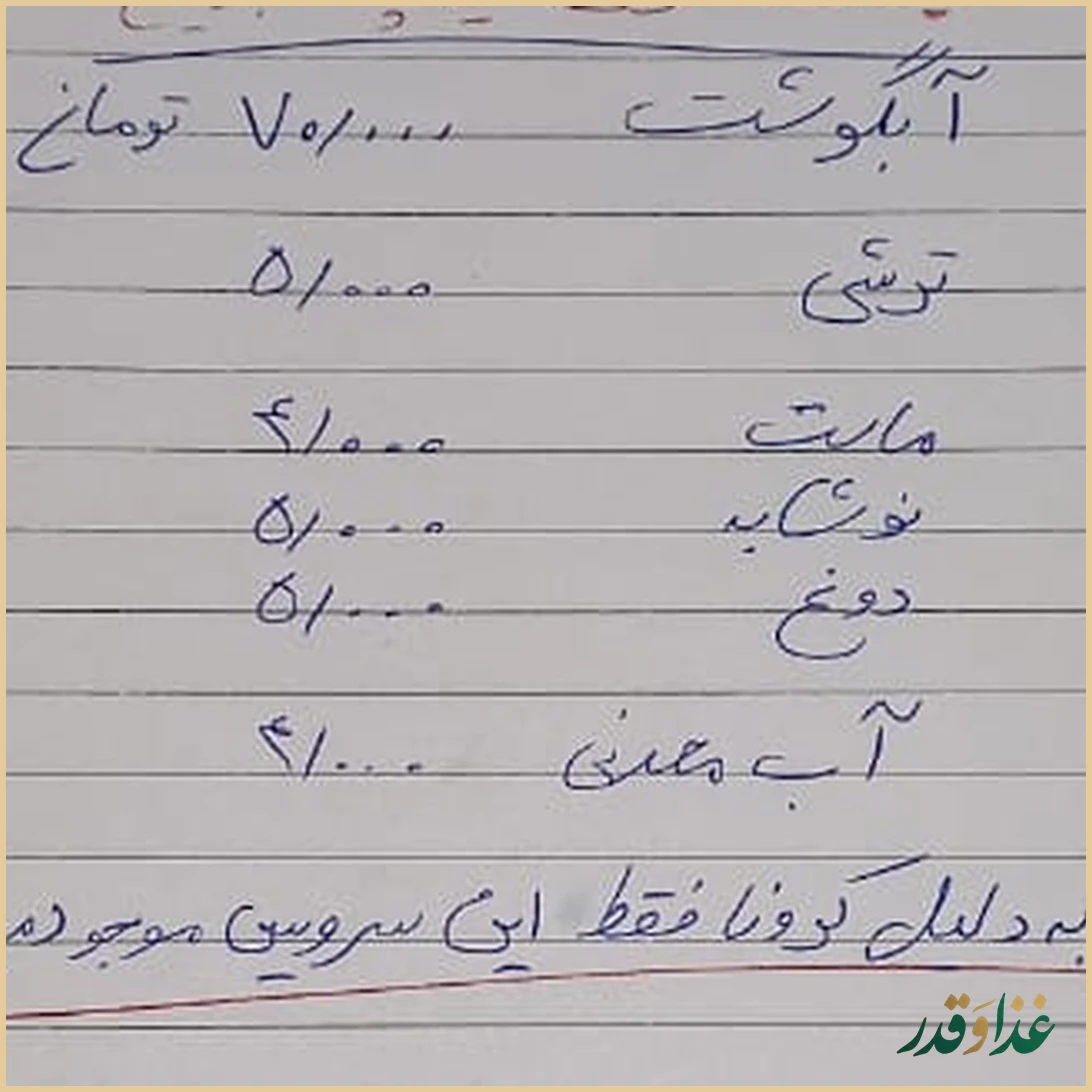 آبگوشت ۷۰/۰۰۰ تومان
ترشی ۵/۰۰۰
ماست ۴/۰۰۰
نوشابه ۵/۰۰۰
دوغ ۵/۰۰۰
آب معدنی ۴/۰۰۰
به دلیل کرونا فقط این سرویس موجود
غذا و قدر